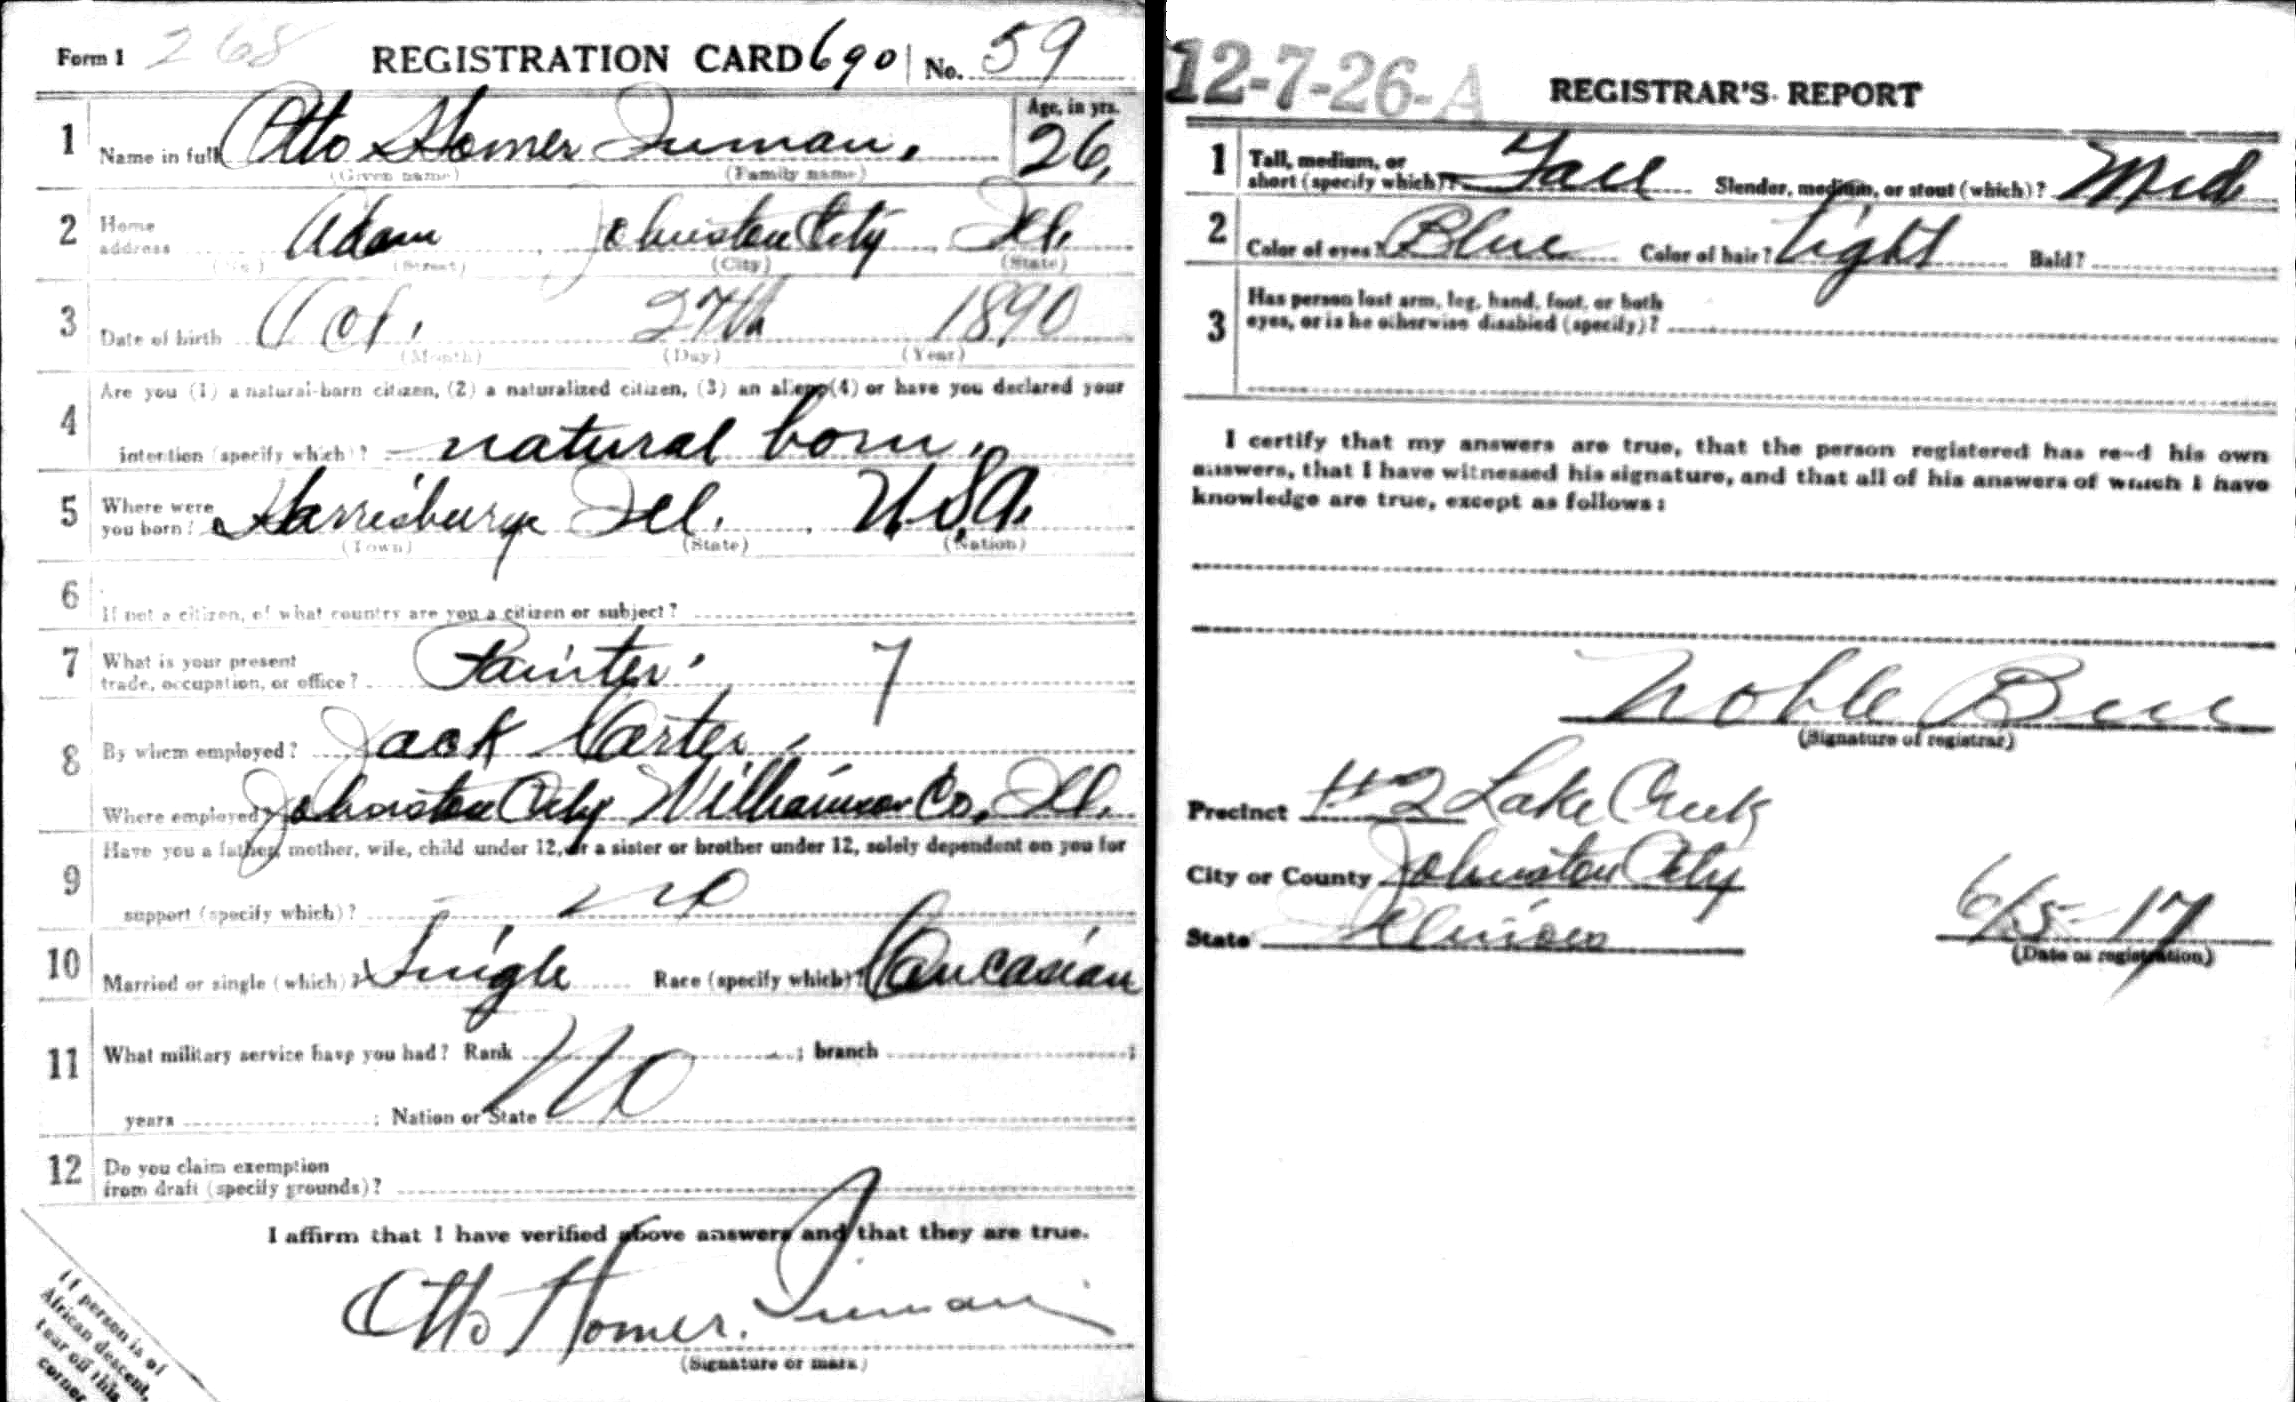 Form 1 268 REGISTRATION CARD 690 No. 59
1 Name in full Otto Homer Inman. Age, in yrs. 26,
(Given name) (Family name)
2 Home address Adam Johnston City Ill.
(No.) (Street) (City) (State)
3 Date of birth Oct. 27th 1890
(Month) (Day) (Year)
4 Are you (1) a natural-born citizen, (2) a naturalized citizen, (3) an alien, (4) or have you declared your
intention (specify which)? natural born.
5 Where were you born? Harrisburg Ill. U.S.A.
(Town) (State) (Nation)
6 If not a citizen, of what country are you a citizen or subject?
7 What is your present trade, occupation, or office? Painter 7
8 By whom employed? Jack Carter
Where employed? Johnston City Williamson Co. Ill.
9 Have you a father, mother, wife, child under 12, or a sister or brother under 12, solely dependent on you for
support (specify which)? no
10 Married or single (which)? Single Race (specify which)? Caucasian
11 What military service have you had? Rank no ; branch ;
years ; Nation or State
12 Do you claim exemption from draft (specify grounds)?
I affirm that I have verified above answers and that they are true.
Otto Homer. Inman
(Signature or mark)
If person is of
African descent,
tear off this
corner
12-7-26-A REGISTRAR'S REPORT
1 Tall, medium, or short (specify which)? Tall Slender, medium, or stout (which)? Med
2 Color of eyes? Blue Color of hair? Light Bald?
3 Has person lost arm, leg, hand, foot, or both
eyes, or is he otherwise disabled (specify)?
I certify that my answers are true, that the person registered has read his own
answers, that I have witnessed his signature, and that all of his answers of which I have
knowledge are true, except as follows:
Noble
(Signature of registrar)
Precinct #2 Lake Creek
City or County Johnston City
State Illinois 6/5-17
(Date of registration)